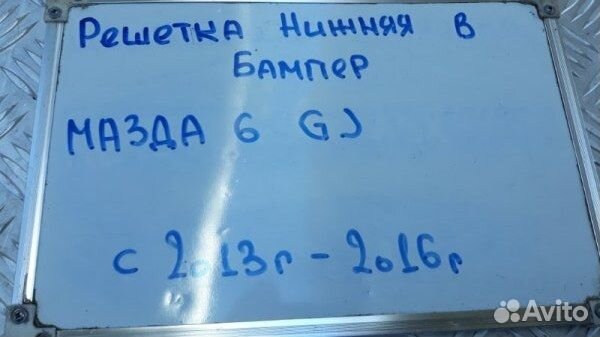 Решетка Нижняя в
Бампер
МАЗДА 6 GJ
с 2013г - 2016г
Avito